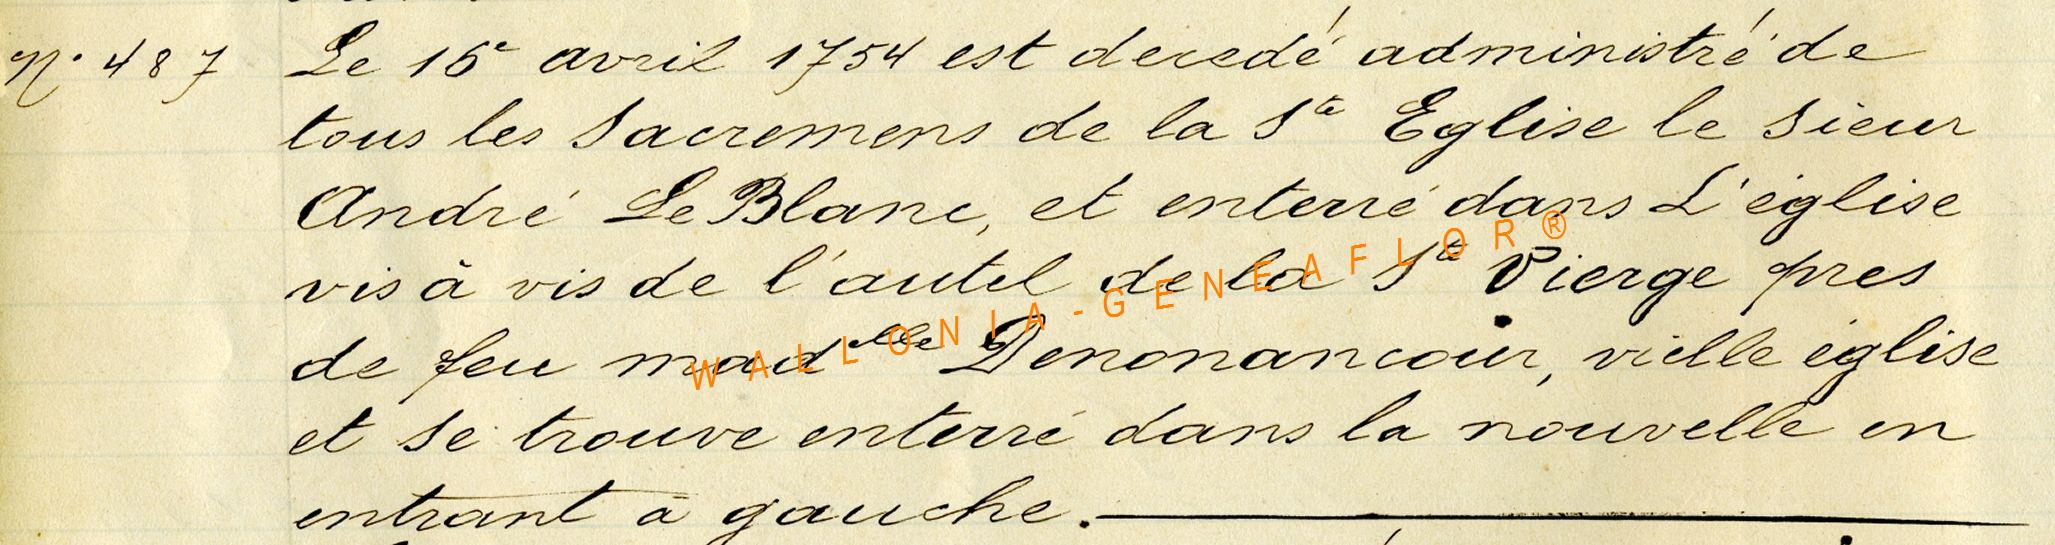 N° 487 Le 15e avril 1754 est decedé administré de
tous les Sacremens de la Ste Eglise le Sieur
André Le Blanc, et enterré dans L'église
vis à vis de l'autel de la Ste Vierge pres
de feu madelle Denonancour, vielle église
et se trouve enterré dans la nouvelle en
entrant à gauche.
WALLONIA-GENEAFLOR®